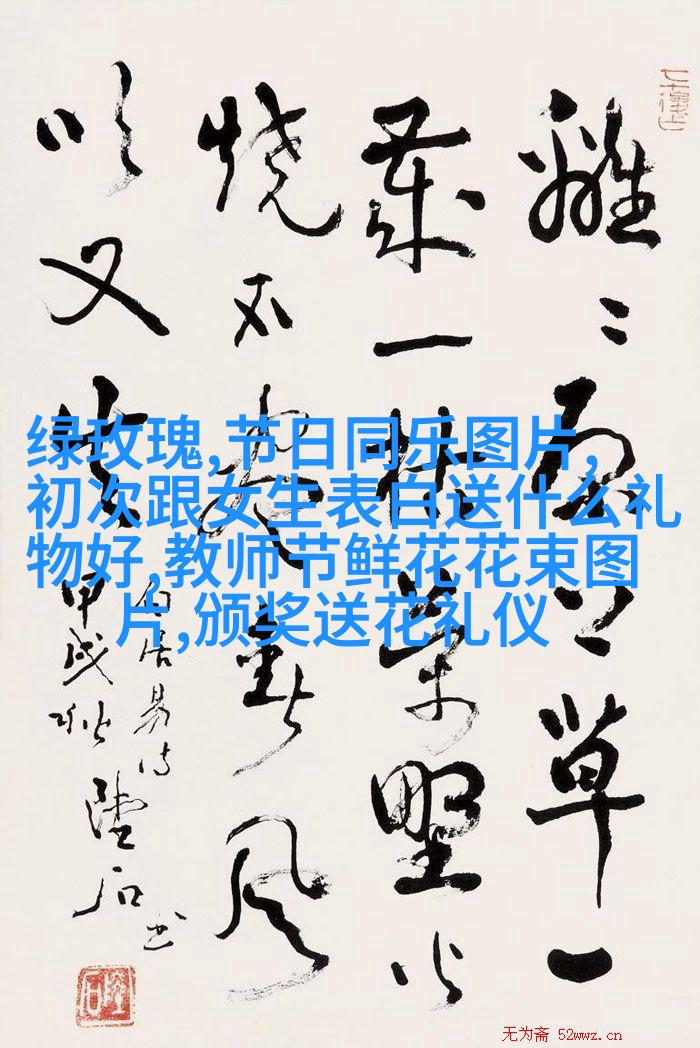 離〻原上草一
歲一枯榮野火
燒不盡春風
吹又生
白居易诗
甲戌秋
绿玫瑰,节日同乐图片,
初次跟女生表白送什么礼
物好,教师节鲜花花束图
片,颁奖送花礼仪
无为斋 52wwz.cn